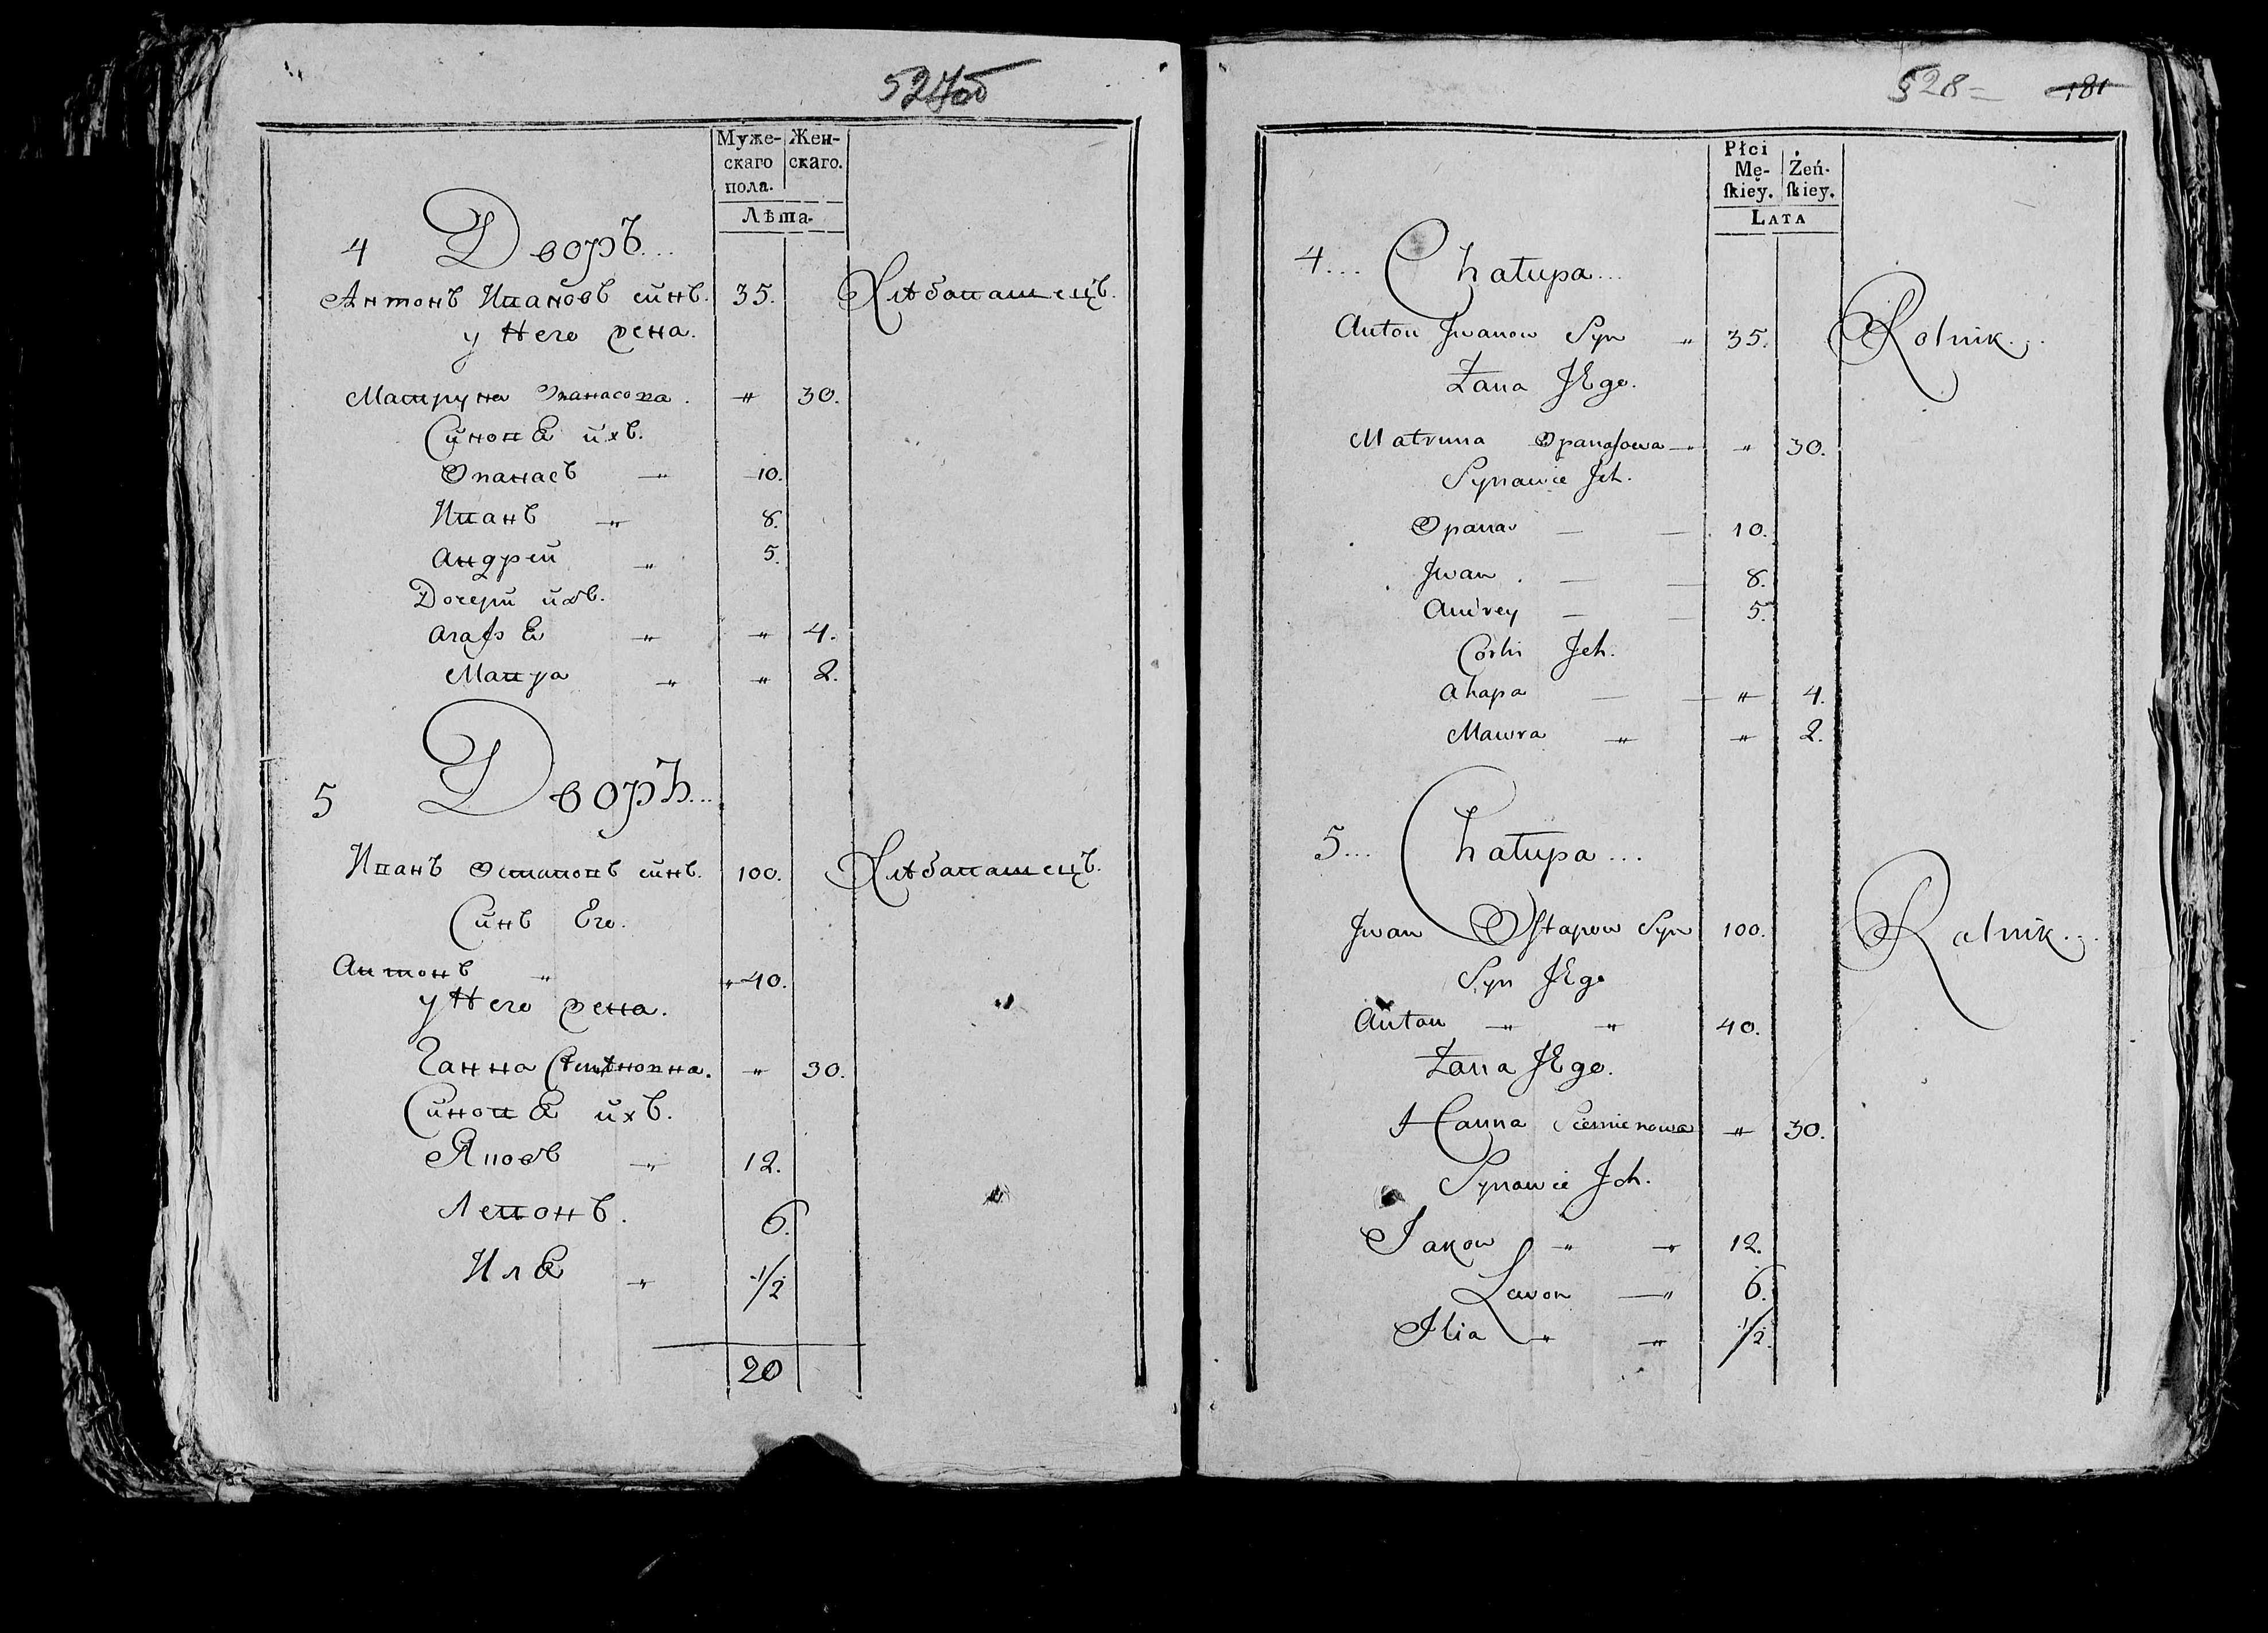 527об
Муже- Жен-
скаго скаго.
пола.
Лѣта.
4 Дворъ...
Антонъ Ивановъ синъ. 35. Хлѣбопашецъ.
у Него жена.
Матруна Опанасова. " 30.
Синовѣ ихъ.
Опанасъ 10.
Иванъ " 8.
Андрей " 5.
Дочери ихъ.
Агафѣ " " 4.
Мавра " " 2.
5 Дворъ...
Иванъ Остаповъ синъ. 100. Хлѣбопашецъ.
Синъ Его.
Антонъ " " 40.
у Него жена.
Ганна " 30.
Синовѣ ихъ.
Яковъ " 12.
Левонъ. 6.
Илѣ " 1/2
20
528 181
Płci
Mę- Żeń-
ſkiey. ſkiey.
LATA
4... Chałupa...
Anton Jwanow Syn " 35. Rolnik...
Żana JEgo.
Matruna Opanaſowa " 30.
Synowie Jch.
Opanas 10.
Jwan 8.
Andrey 5.
Corki Jch.
Ahapa " 4.
Mawra " " 2.
5... Chałupa...
Jwan Oſtapow Syn 100. Rolnik...
Syn JEgo
Anton " " 40.
Żana JEgo.
Hanna Siemienowa " 30.
Synowie Jch.
Jakow " " 12.
Lavon " 6.
Ilia " " 1/2.